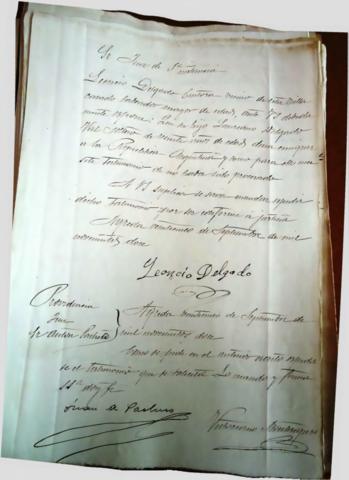 Sr Juez de 1ª instancia
Leoncio Delgado vecino de esta villa
casado labrador mayor de edad, ante V.S. debida
mente expone: Que su hijo Leandro Delgado
de veinte años de edad desea emigrar
a la República Argentina y como para ello nece
sita testimonio de no haber sido procesado
A V.S. suplica se sirva mandar expedir
dicho testimonio por ser conforme a justicia
Agreda de Septiembre de mil
novecientos doce
Leoncio Delgado
Providencia
Juez
Sr
Agreda de Septiembre de
mil novecientos doce
Como se pide en el anterior escrito expida
se el testimonio que se solicita Lo mandó y firma
Sª doy fe